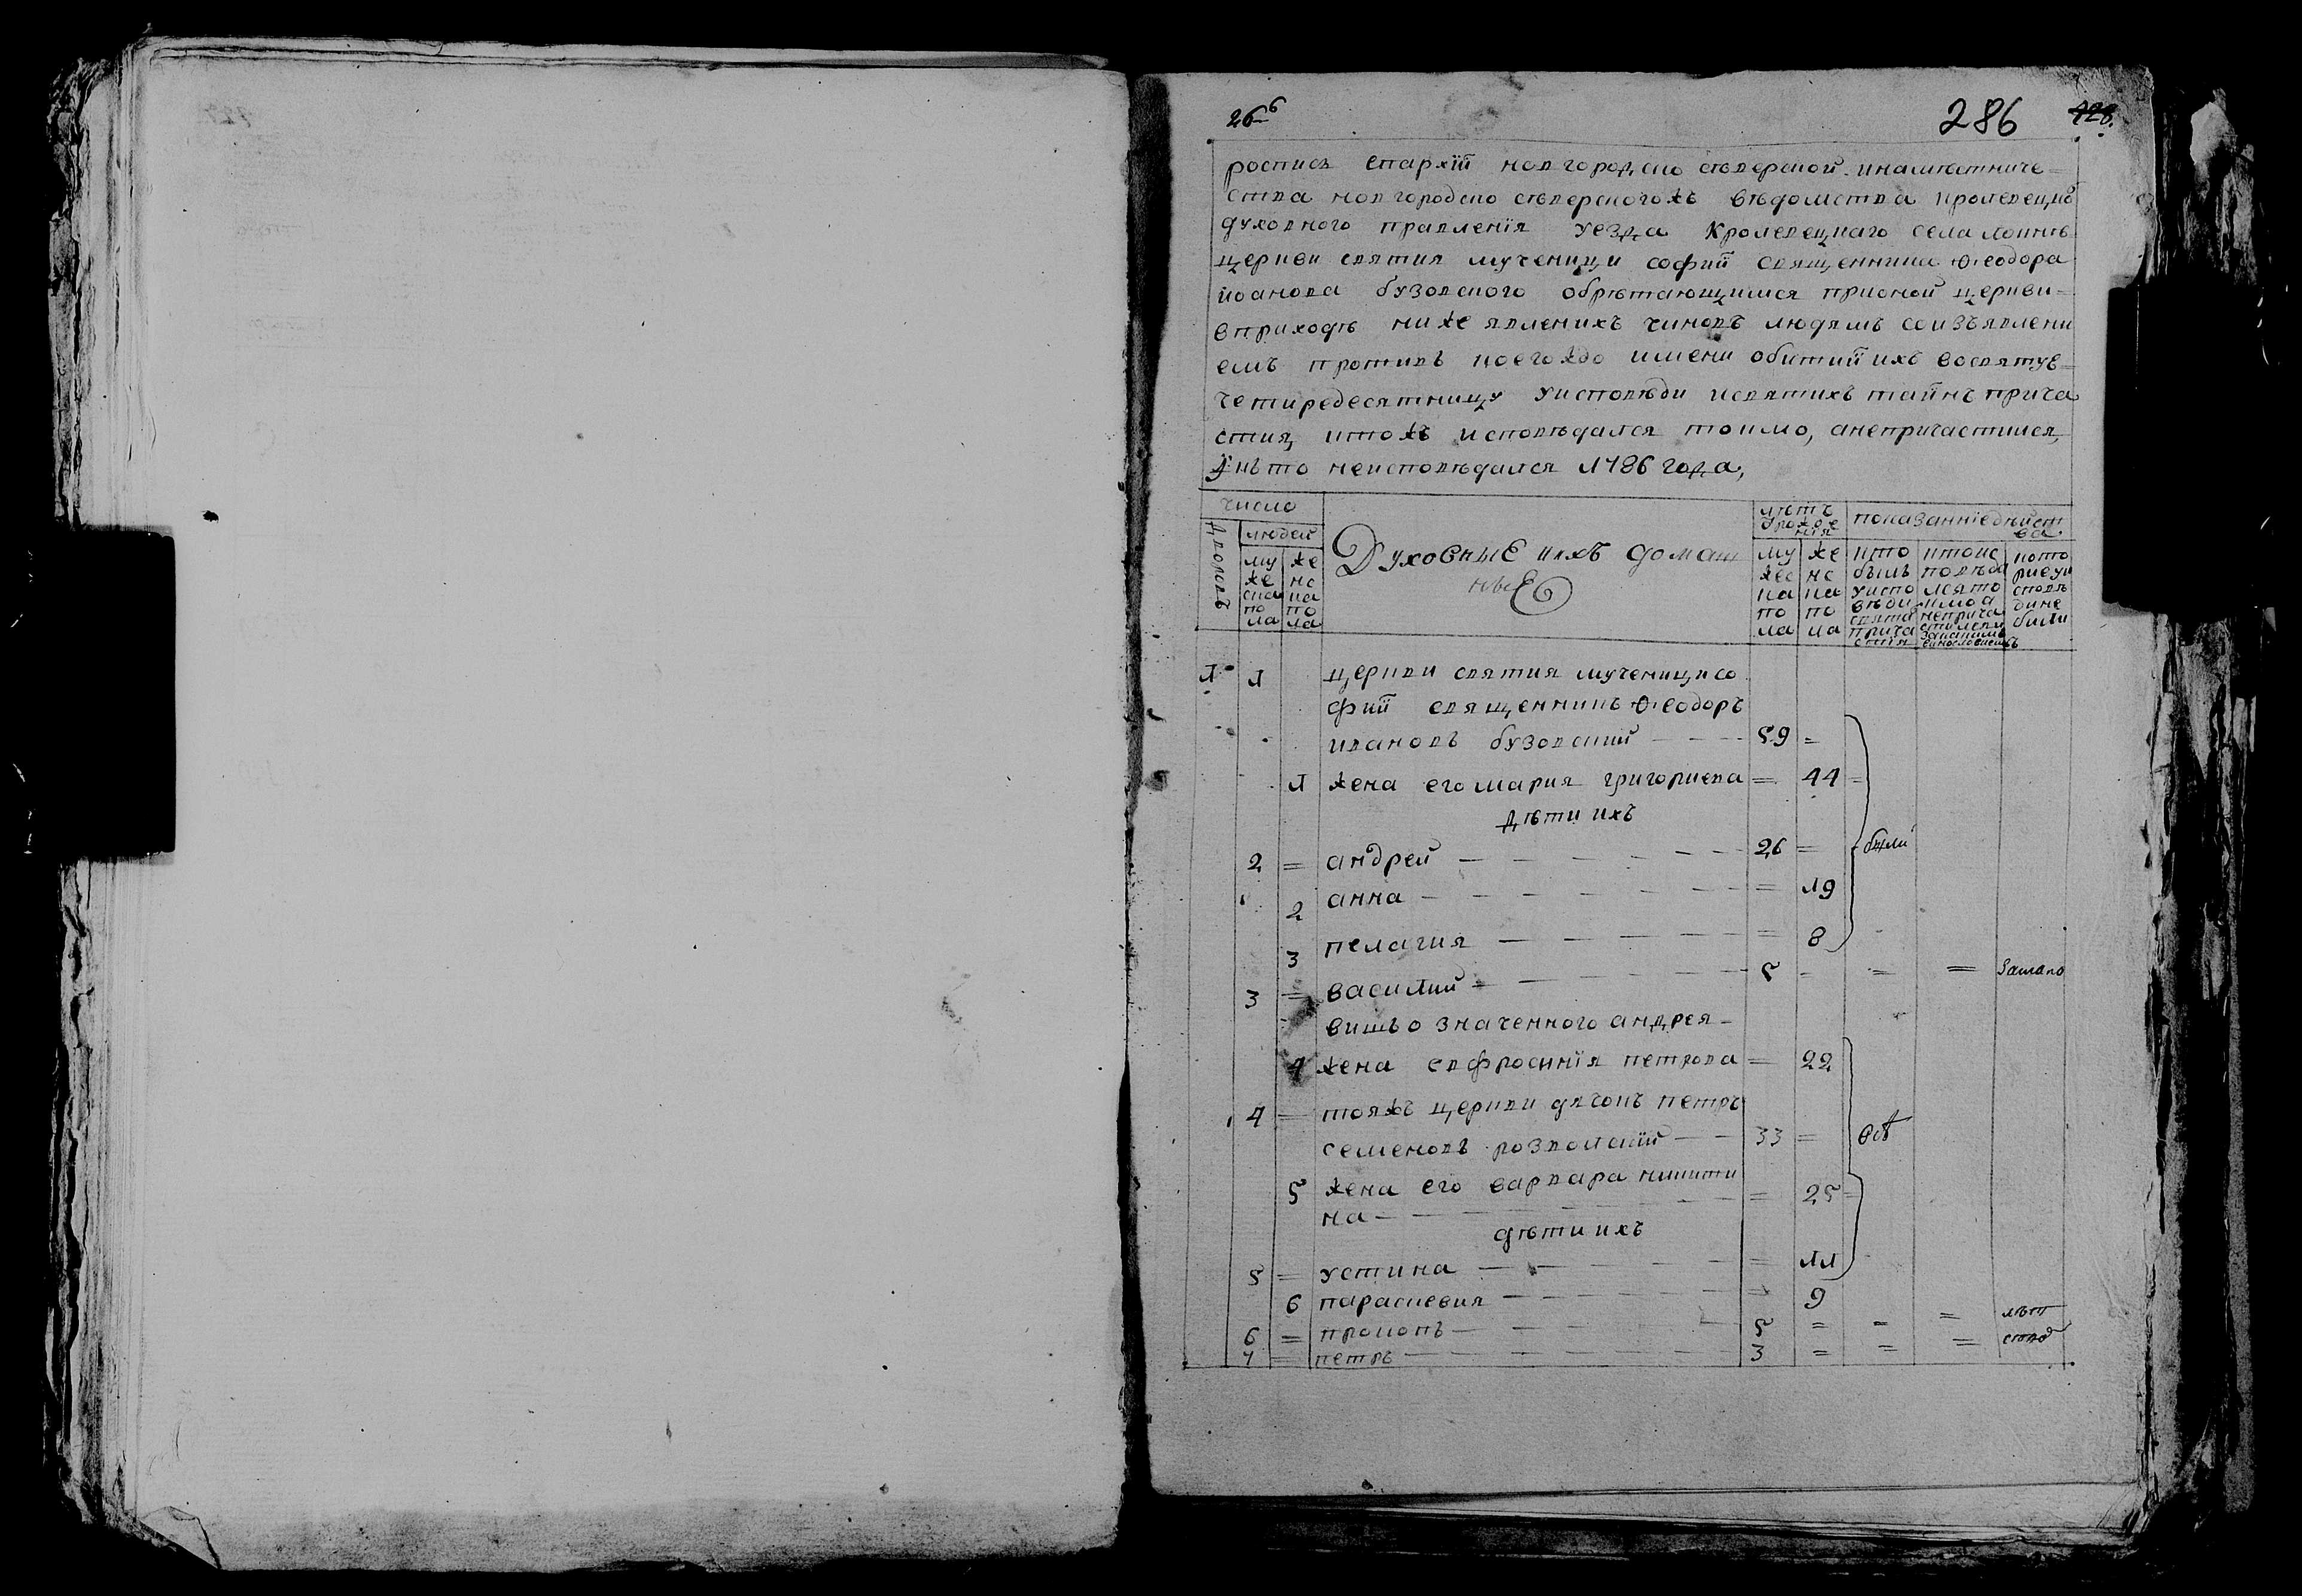 266
286 428.
роспись епархїй новгородско сѣверской инамѣстниче=
ства новгородско сѣверскогожъ вѣдомства кролевецкъ
духовного правленїя уезда Кролевецкаго села
церкви святия мученици софий священника ѳеодора
иоанова бузовского обрѣтающимся прионой церкви=
вприходѣ ниже явленихъ чиновъ людямъ соизъявлени
емъ противъ коегождо имени обитий ихъ восвятую=
четиредесятницу уисповѣди исвятихъ таинъ прича
стия, ктожъ исповѣдался токмо, анепричастился,
икто неисповѣдался 1786 года,
число
Дворовъ
людей
муже
ска
по
ла
же
нс
ка
по
ла
Духовные ихъ домаш
ныЕ
лѣтъ
ѿрожде
нїя
му
жес
ка
по
ла
же
нс
ка
по
ла
показаннїедѣйст
ва.
кто
былъ
уиспо
вѣди
свята
прича
стия
ктоис
повѣда
лсято
кмо а
неприча
стился
кото
риеуи
сповѣ
дине
были
1 1 церкви святия мученици со
фий священникъ ѳеодоръ
ивановъ бузовский — 59 =
1 жена его мария григориева = 44 =
дѣти ихъ
2 = андрей — 26 = были
2 анна — = 19
3 пелагия — = 8
3 = василий — 5 = = = замало
вишъ означенного андрея
4 жена евфросинїя петрова = 22
4 = тояжъ церкви дячокъ петръ
семеновъ розволский — 33 = всѣ
5 жена его варвара никити
на — = 25 =
дѣти ихъ
5 = устина — = 11
6 параскевия — 9
6 = прокопъ — 5 = = = лѣт
7 = петръ — 3 = = =